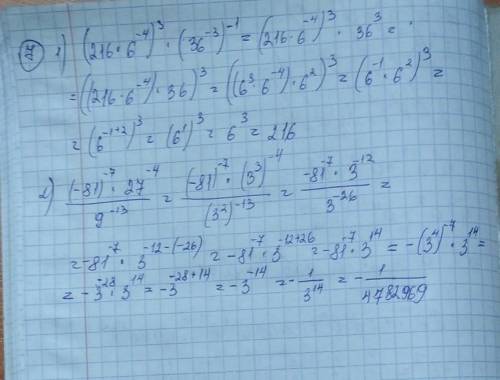 7 1) (216·6⁻⁴)³ · (36⁻³)⁻¹ = (216·6⁻⁴)³ · 36³ =
= ((216·6⁻⁴)·36)³ = ((6³·6⁻⁴)·6²)³ = (6⁻¹·6²)³ =
= (6⁻¹⁺²)³ = (6¹)³ = 6³ = 216
2) (-81)⁻⁷·27⁻⁴ / 9⁻¹³ = (-81)⁻⁷·(3³)⁻⁴ / (3²)⁻¹³ = -81⁻⁷·3⁻¹² / 3⁻²⁶ =
= -81⁻⁷·3⁻¹²⁻⁽⁻²⁶⁾ = -81⁻⁷·3⁻¹²⁺²⁶ = -81⁻⁷·3¹⁴ = -(3⁴)⁻⁷·3¹⁴ =
= -3⁻²⁸·3¹⁴ = -3⁻²⁸⁺¹⁴ = -3⁻¹⁴ = -1/3¹⁴ = -1/4782969